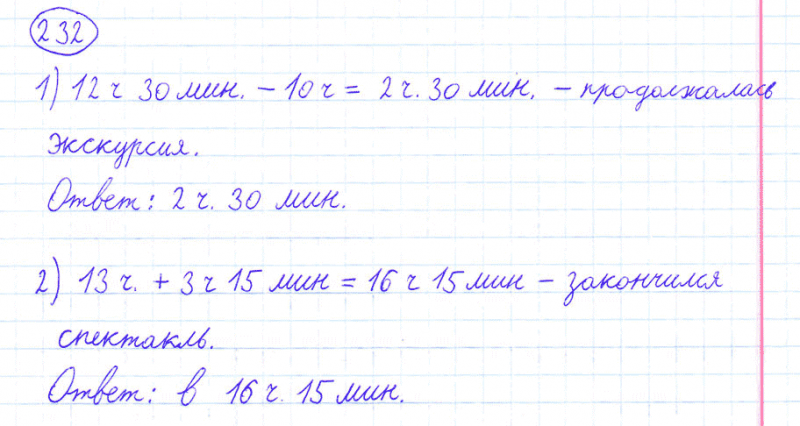 232
1) 12 ч 30 мин. – 10 ч = 2 ч. 30 мин. – продолжалась
экскурсия.
Ответ: 2 ч. 30 мин.
2) 13 ч. + 3 ч 15 мин = 16 ч 15 мин – закончился
спектакль.
Ответ: в 16 ч. 15 мин.